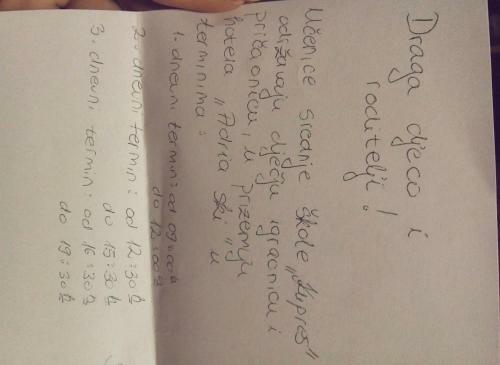 Draga djeco i
roditelji!
Učenice Srednje škole „Kupres"
održavaju dječju igraonicu i
pričaonicu, u prizemlju
hotela „Adria ski" u
terminima:
1. dnevni termin: od 09:00h
do 12:00h
2. dnevni termin: od 12:30h
do 15:30h
3. dnevni termin: od 16:30h
do 19:30h